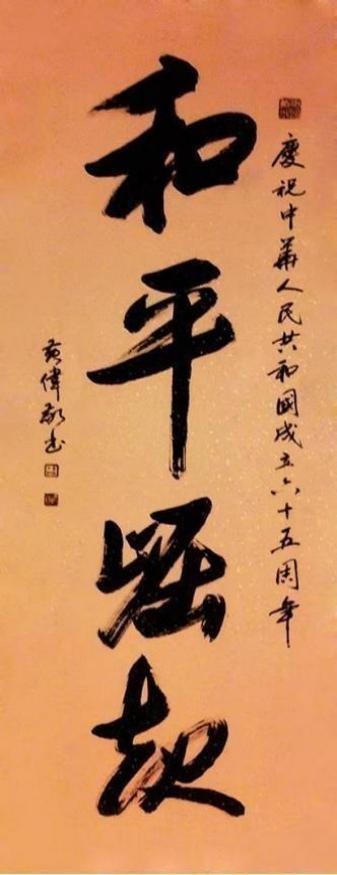 慶祝中華人民共和國成立六十五周年
和平崛起
黄偉敬书